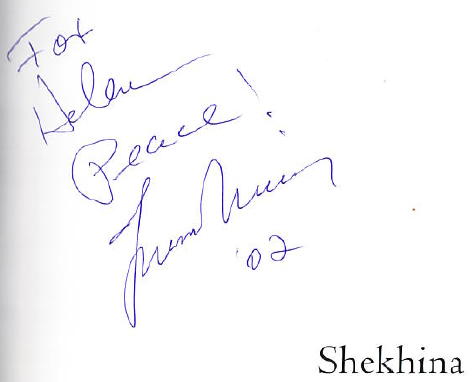 For
Helen
Peace!
'02
Shekhina